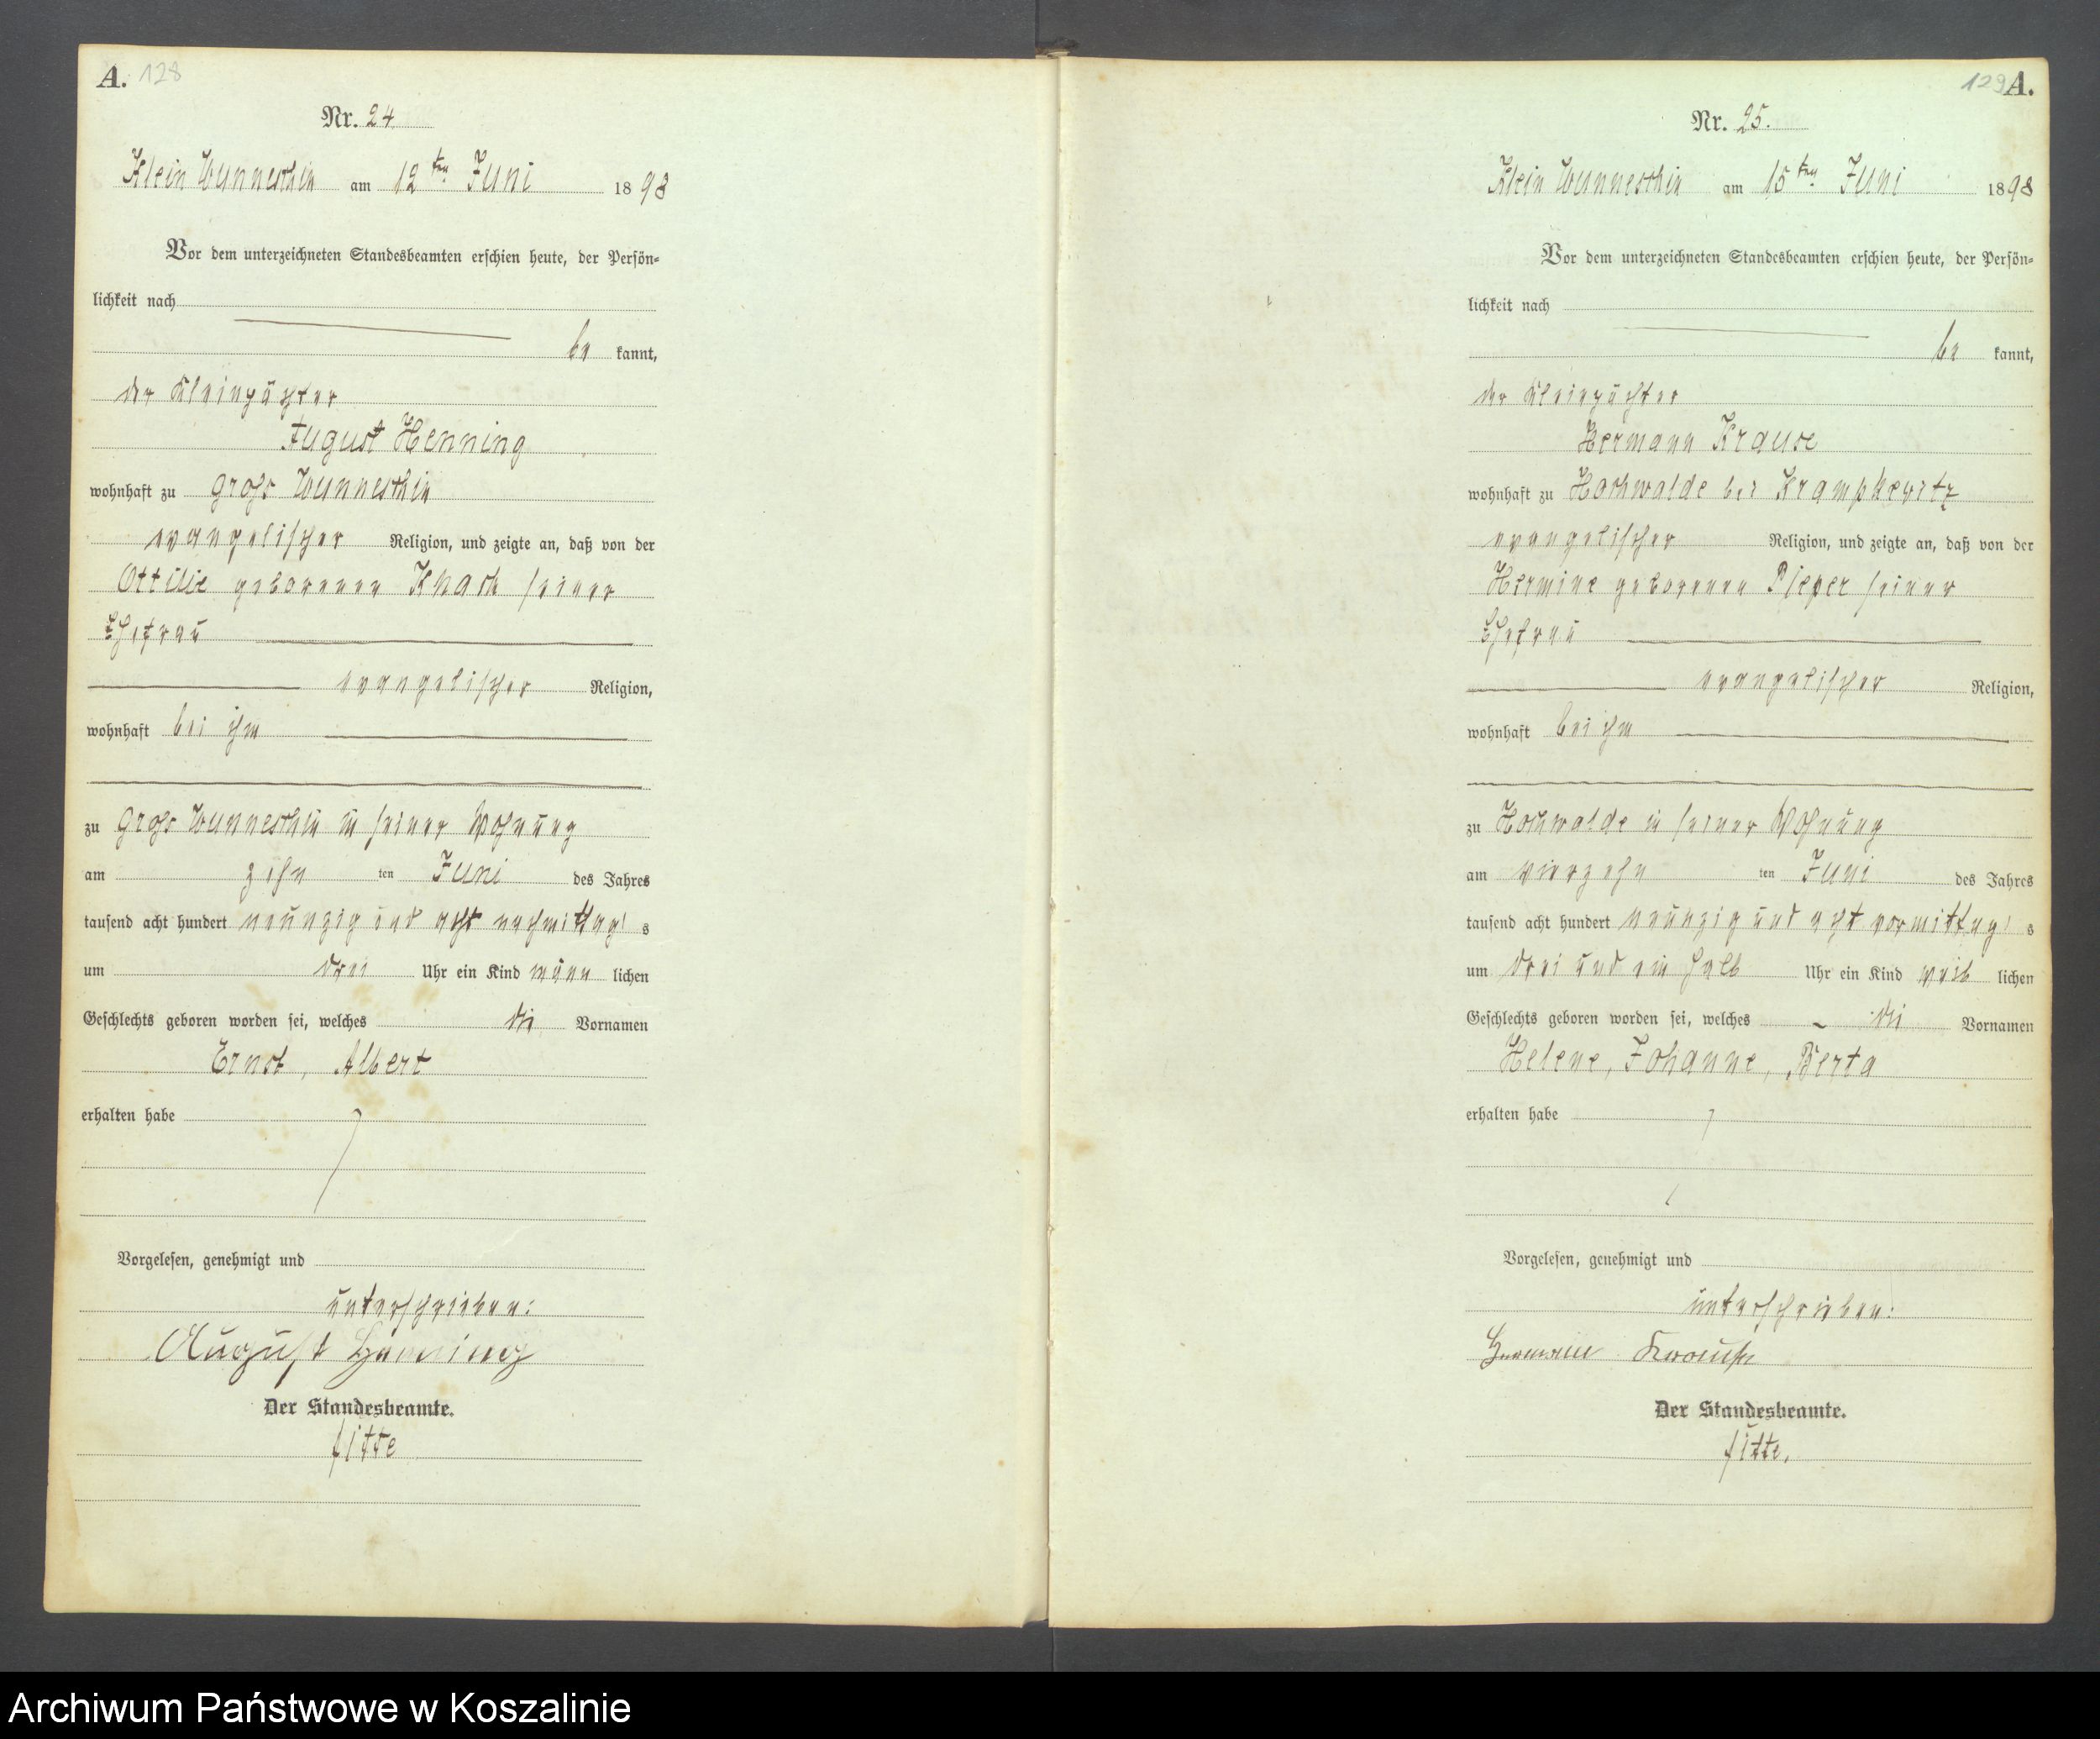 A. 128
Nr. 24
Klein Wunneschin am 12ten Juni 1898
Vor dem unterzeichneten Standesbeamten erschien heute, der Persön=
lichkeit nach
be kannt,
der Kleinpächter
August Henning
wohnhaft zu Groß Wunneschin
evangelischer Religion, und zeigte an, daß von der
Ottilie geborenen Knach seiner
Ehefrau
evangelischer Religion,
wohnhaft bei ihm
zu Groß Wunneschin in seiner Wohnung
am zehn ten Juni des Jahres
tausend acht hundert neunzig und acht nachmittag s
um drei Uhr ein Kind männ lichen
Geschlechts geboren worden sei, welches die Vornamen
Ernst, Albert
erhalten habe
Vorgelesen, genehmigt und
unterschrieben:
August Henning
Der Standesbeamte.
129 A.
Nr. 25.
Klein Wunneschin am 15ten Juni 1898
Vor dem unterzeichneten Standesbeamten erschien heute, der Persön=
lichkeit nach
be kannt,
der Kleinpächter
Hermann Krause
wohnhaft zu Hochwalde bei Krampkewitz
evangelischer Religion, und zeigte an, daß von der
Hermine geborenen Pieper seiner
Ehefrau
evangelischer Religion,
wohnhaft bei ihm
zu Hochwalde in seiner Wohnung
am vierzehn ten Juni des Jahres
tausend acht hundert neunzig und acht vormittag s
um drei und ein halb Uhr ein Kind weib lichen
Geschlechts geboren worden sei, welches die Vornamen
Helene, Johanne, Berta
erhalten habe
Vorgelesen, genehmigt und
unterschrieben:
Hermann Krause
Der Standesbeamte.
Archiwum Państwowe w Koszalinie